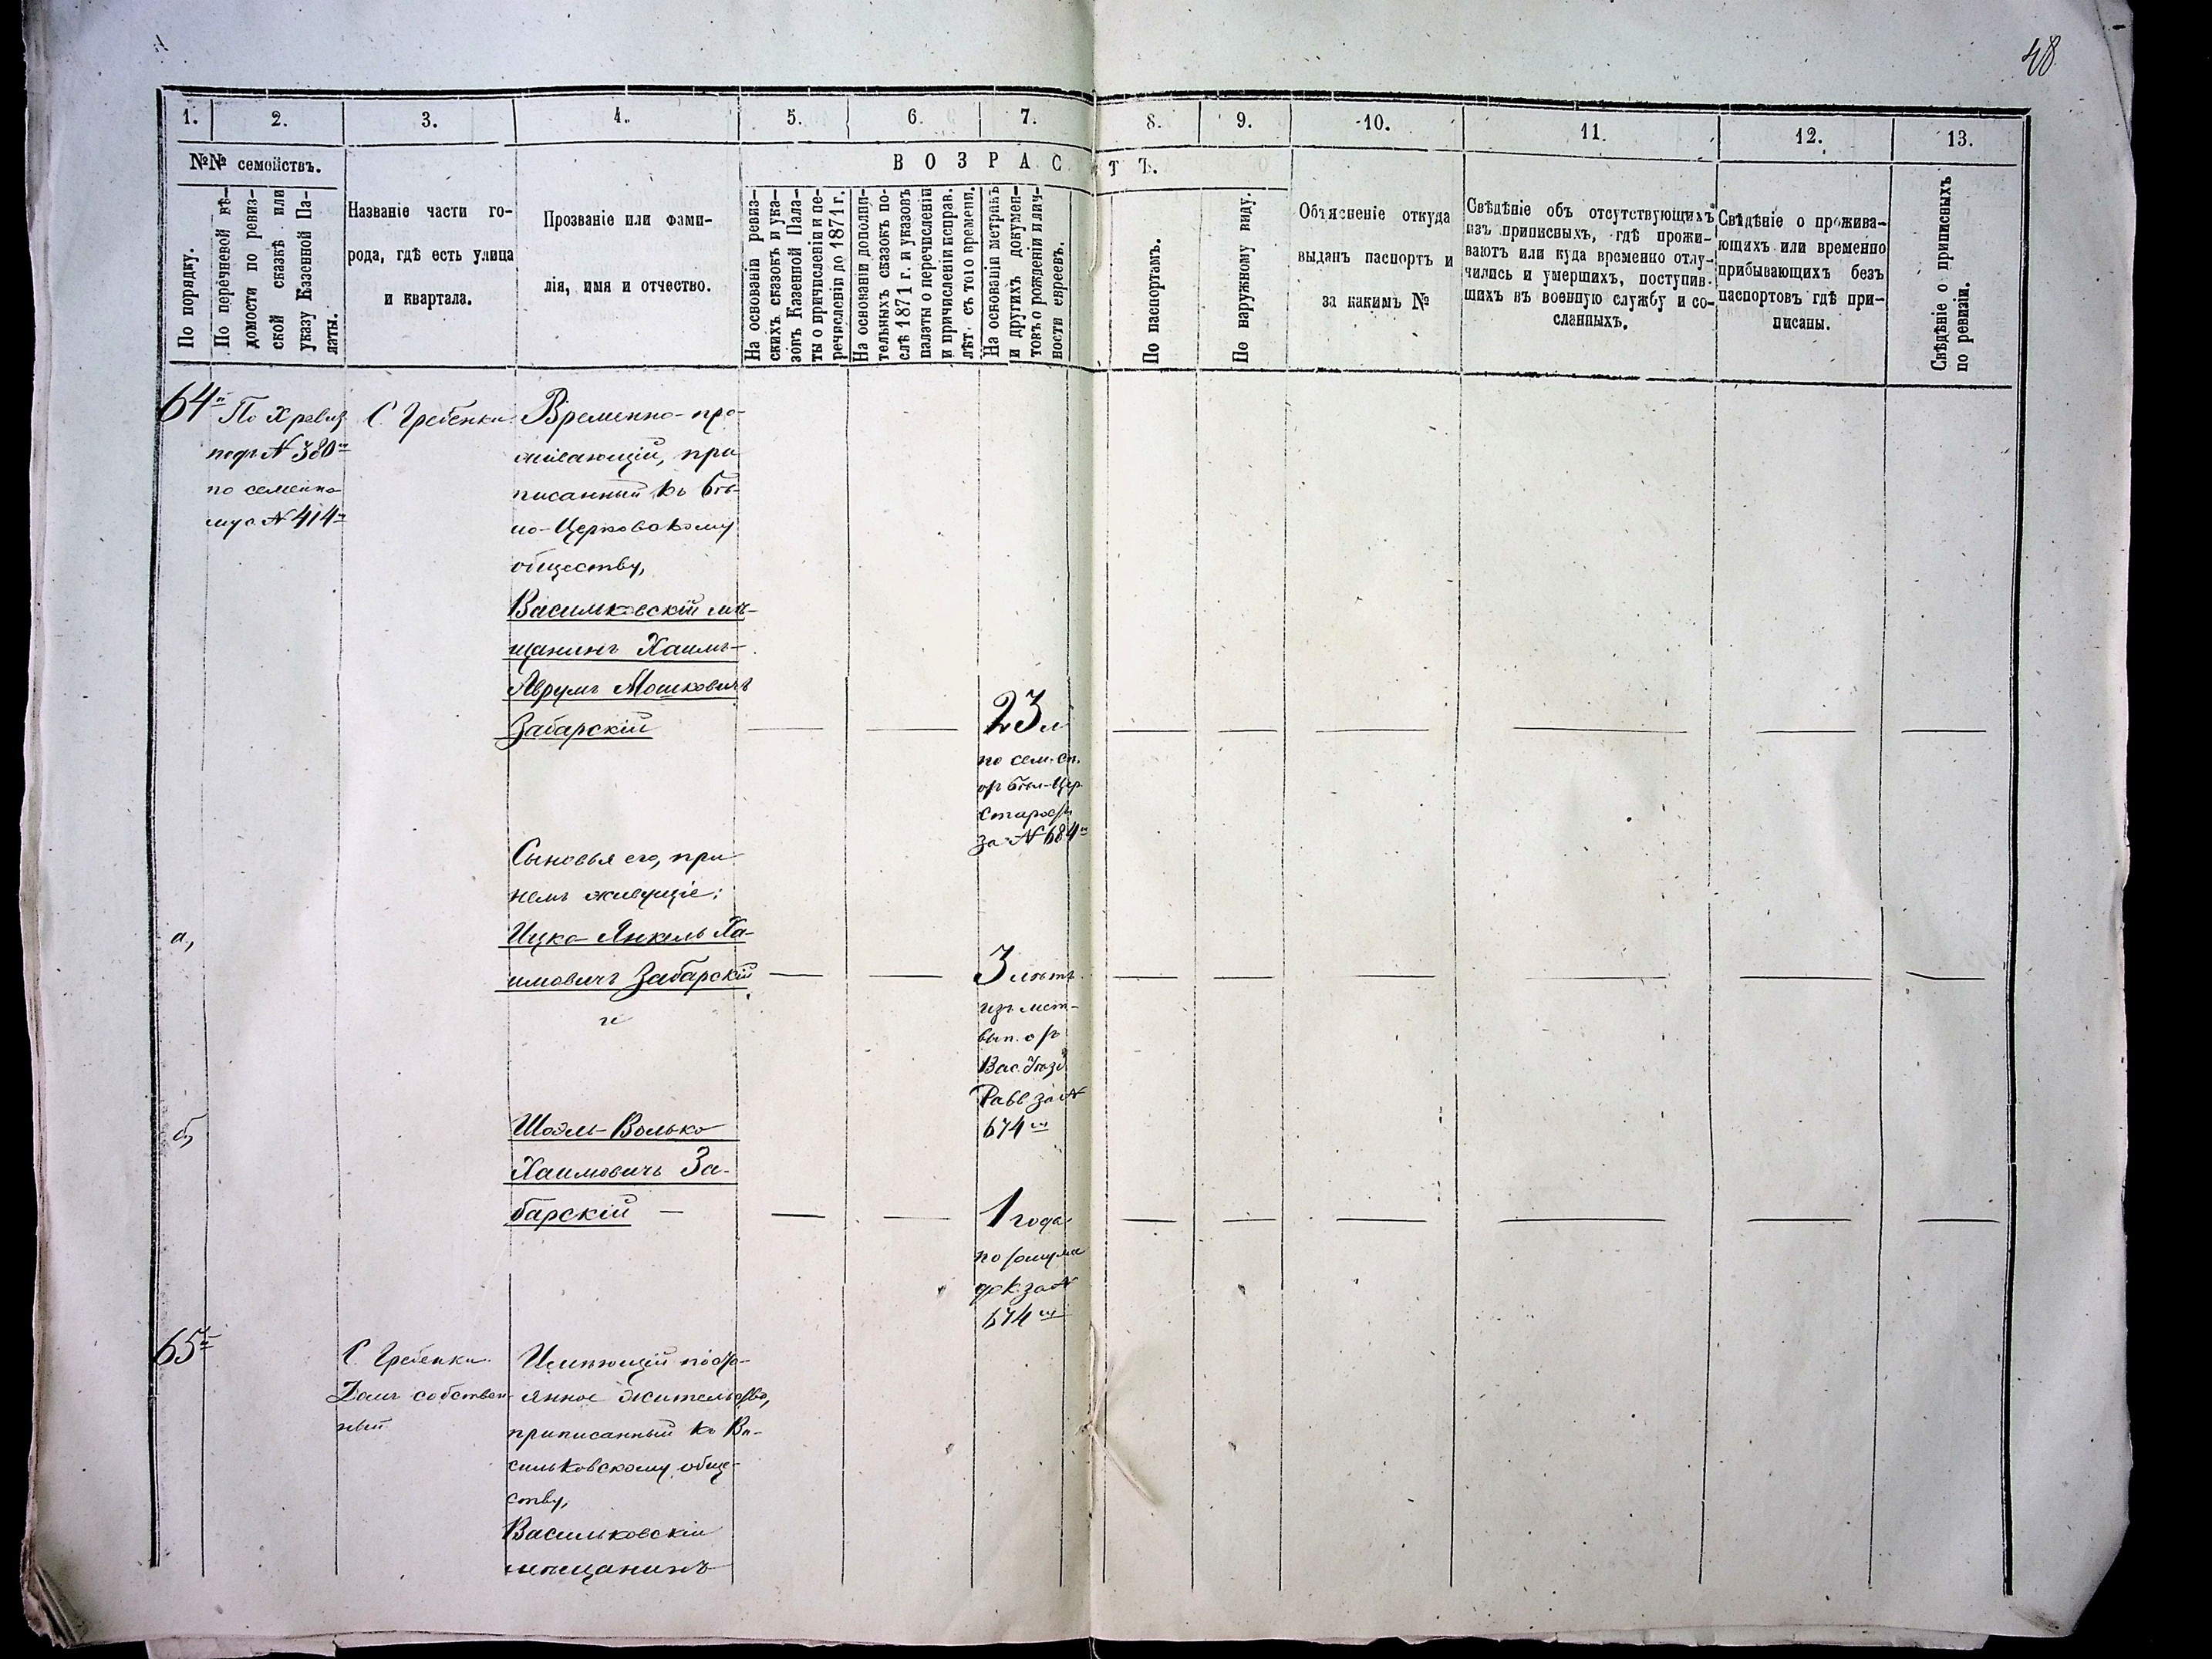 48
1. 2. 3. 4. 5. 6. 7. 8. 9. 10. 11. 12. 13.
№№ семействъ.
В О З Р А С Т Ъ.
По порядку.
По перечневой вѣ-
домости по ревиз-
ской сказкѣ или
указу Казенной Па-
латы.
Названіе части го-
рода, гдѣ есть улица
и квартала.
Прозваніе или фами-
лія, имя и отчество.
На основаніи ревиз-
скихъ сказокъ и ука-
зовъ Казенной Пала-
ты о причисленіи и пе-
речисленіи до 1871 г.
На основаніи дополни-
тельныхъ сказокъ по-
слѣ 1871 г. и указовъ
палаты о перечисленіи
и причисленіи исправ.
лѣт. съ того времени.
На основаніи метрикъ
и другихъ докумен-
товъ о рожденіи и лич-
ности евреевъ.
По паспортамъ.
По наружному виду.
Объясненіе откуда
выданъ паспортъ и
за какимъ №
Свѣдѣніе объ отсутствующихъ
изъ приписныхъ, гдѣ прожи-
ваютъ или куда временно отлу-
чились и умершихъ, поступив-
шихъ въ военную службу и со-
сланныхъ.
Свѣдѣніе о прожива-
ющихъ или временно
прибывающихъ безъ
паспортовъ гдѣ при-
писаны.
Свѣдѣніе о приписныхъ
по ревизіи.
64й
По X ревиз
подъ № 380м
по семейно-
му с. № 414м
С. Гребенки.
Временно-про-
живающій, при
писанный къ Бѣ-
ло-Церковскому
обществу,
Васильковскій мѣ-
щанинъ Хаимъ-
Аврумъ Мошковичъ
Забарскій
23 л
по сем. сп.
от Бѣл-Цер
Старосты
за № 684м
Сыновья его, при
немъ живущіе:
а,
Ицко-Янкель Ха-
имовичъ Забарскій
и
3 лѣтъ
изъ мет-
вып. отъ
Вас. Уѣзд.
Равв. за №
674м
б,
Шоэль-Волько
Хаимовичъ За-
барскій —
1 года
по
док. за №
674м
65й
С. Гребенки.
Домъ собствен-
ный
Имѣющій посто-
янное жительство,
приписанный къ Ва-
сильковскому обще-
ству,
Васильковскій
мѣщанинъ